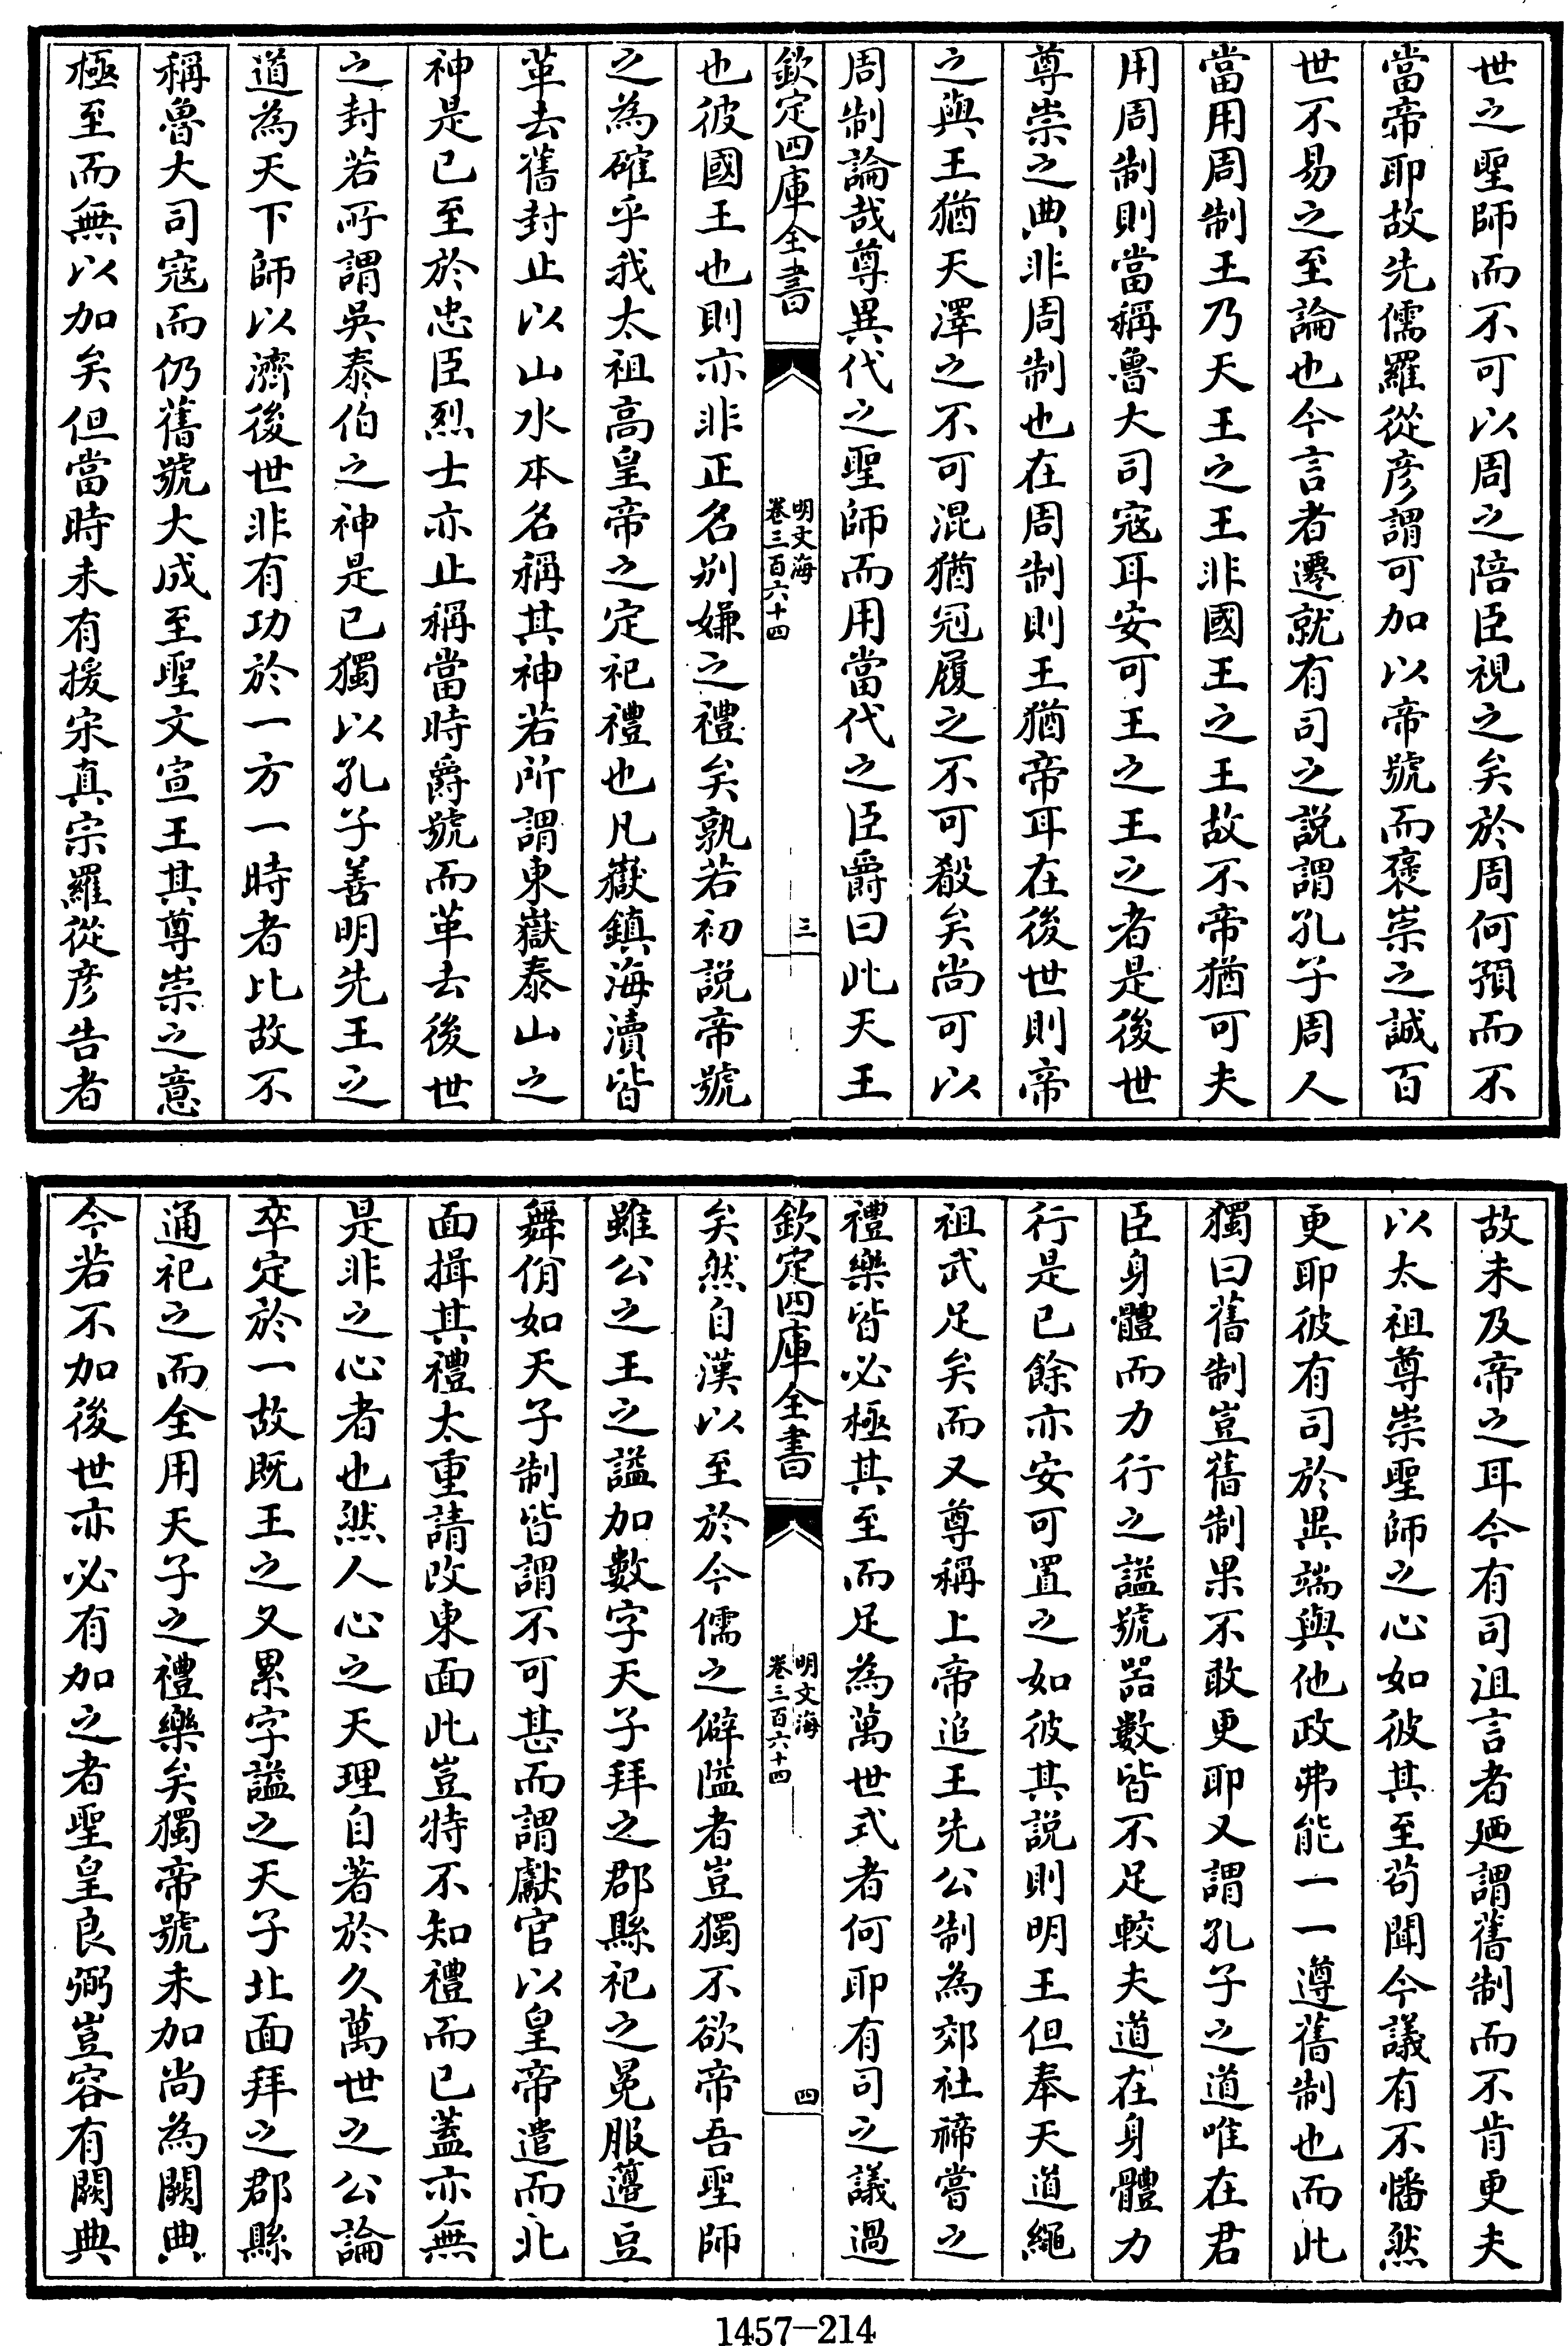 世之聖師而不可以周之陪臣視之矣於周何預而不
當帝耶故先儒羅從彦謂可加以帝號而褒崇之誠百
世不易之至論也今言者遷就有司之説謂孔子周人
當用周制王乃天王之王非國王之王故不帝猶可夫
用周制則當稱魯大司寇耳安可王之王之者是後世
尊崇之典非周制也在周制則王猶帝耳在後世則帝
之與王猶天澤之不可混猶冠履之不可殽矣尚可以
周制論哉尊異代之聖師而用當代之臣爵曰此天王
欽定四庫全書
明文海
卷三百六十四
三
也彼國王也則亦非正名别嫌之禮矣孰若初説帝號
之為確乎我太祖高皇帝之定祀禮也凡嶽鎮海瀆皆
革去舊封止以山水本名稱其神若所謂東嶽泰山之
神是已至於忠臣烈士亦止稱當時爵號而革去後世
之封若所謂吳泰伯之神是已獨以孔子善明先王之
道為天下師以濟後世非有功於一方一時者比故不
稱魯大司寇而仍舊號大成至聖文宣王其尊崇之意
極至而無以加矣但當時未有援宋真宗羅從彦告者
故未及帝之耳今有司沮言者廼謂舊制而不肯更夫
以太祖尊崇聖師之心如彼其至苟聞今議有不憣然
更耶彼有司於異端與他政弗能一一遵舊制也而此
獨曰舊制豈舊制果不敢更耶又謂孔子之道唯在君
臣身體而力行之謚號器數皆不足較夫道在身體力
行是已餘亦安可置之如彼其説則明王但奉天道繩
祖武足矣而又尊稱上帝追王先公制為郊社禘嘗之
禮樂皆必極其至而足為萬世式者何耶有司之議過
欽定四庫全書
明文海
卷三百六十四
四
矣然自漢以至於今儒之僻隘者豈獨不欲帝吾聖師
雖公之王之謚加數字天子拜之郡縣祀之冕服籩豆
舞佾如天子制皆謂不可甚而謂獻官以皇帝遣而北
面揖其禮太重請改東面此豈特不知禮而已蓋亦無
是非之心者也然人心之天理自著於久萬世之公論
卒定於一故既王之又累字謚之天子北面拜之郡縣
通祀之而全用天子之禮樂矣獨帝號未加尚為闕典
今若不加後世亦必有加之者聖皇良弼豈容有闕典
1457—214